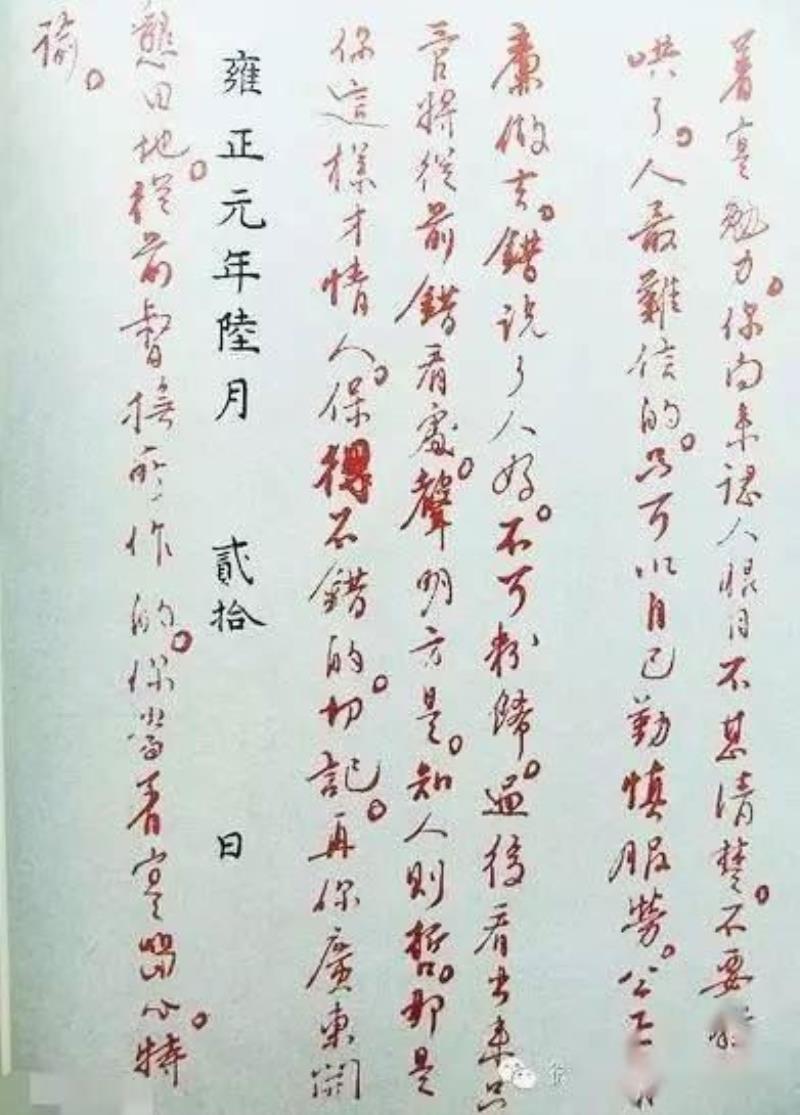 着實勉力。你向來認人眼目不甚清楚。不要
哄了。人最難信的。只可以自己勤慎服勞。公
廉做去。錯說了人好。不可粉飾。過後看出來只
管將從前錯看處。聲明方是。知人則哲。那是
你這樣才情人。保得不錯的。切記。再你廣東開
雍正元年陸月 貳拾 日
墾田地。從前督撫所作的。你當着實留心。特
諭。